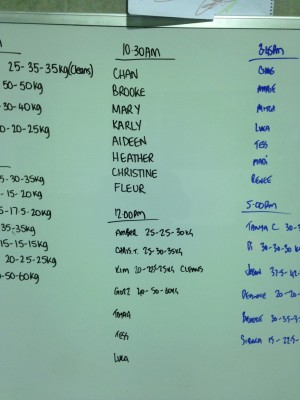 25-35-35kg(Cleans)
-50-50kg
-30-40kg
0-20-25kg
5-30-35kg
-15-20kg
5-17.5-20kg
35-35kg
15-15-15kg
20-25-25kg
0-50-60kg
10:30AM
CHAN
BROOKE
MARY
KARLY
AIDEEN
HEATHER
CHRISTINE
FLEUR
12:00AM
AMBER 25-25-30kg
CHRIS.T. 25-30-35kg
KIM 20-22.5-25kg CLEANS
40-50-60kg
TESS
LUKA
8:45AM
LUKA
TESS
MADI
RENEE
5:00AM
TANYA C. 30-3
Di 30-30-30 K
JASON 37.5-42.